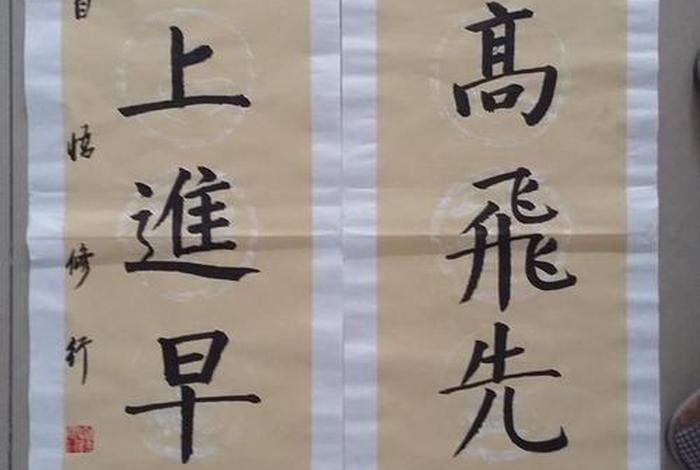 髙飛先
上進早
自悟修行